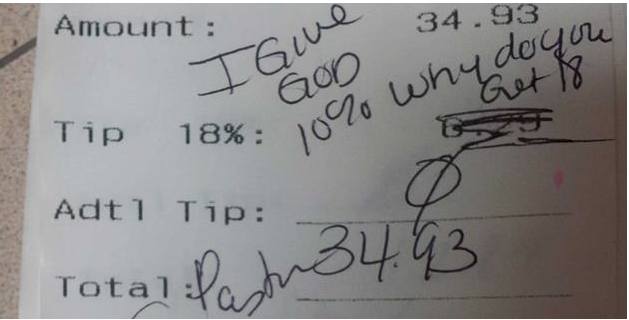 Amount: 34.93
I Give
GOD
10% Why do you
Get 18
Tip 18%: 6.29
Adtl Tip: 0
Total: Pastor 34.93